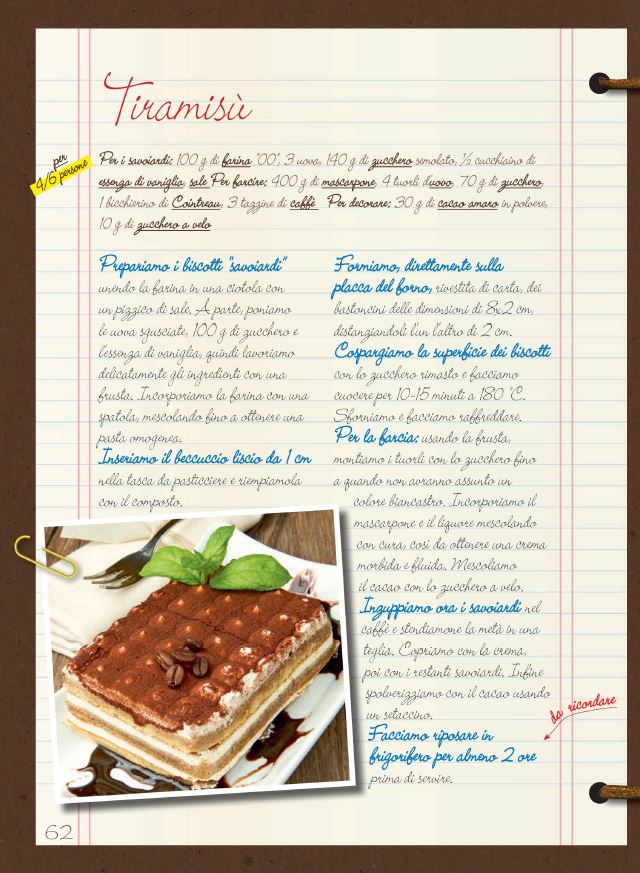 Tiramisù
per
4/6 persone
Per i savoiardi: 100 g di farina "00", 3 uova, 140 g di zucchero semolato, ½ cucchiaino di
essenza di vaniglia, sale Per farcire: 400 g di mascarpone, 4 tuorli d'uovo, 70 g di zucchero,
1 bicchierino di Cointreau, 3 tazzine di caffè Per decorare: 30 g di cacao amaro in polvere,
10 g di zucchero a velo
Prepariamo i biscotti "savoiardi"
unendo la farina in una ciotola con
un pizzico di sale. A parte, poniamo
le uova sgusciate, 100 g di zucchero e
l'essenza di vaniglia, quindi lavoriamo
delicatamente gli ingredienti con una
frusta. Incorporiamo la farina con una
spatola, mescolando fino a ottenere una
pasta omogenea.
Inseriamo il beccuccio liscio da 1 cm
nella tasca da pasticciere e riempiamola
con il composto.
Formiamo, direttamente sulla
placca del forno, rivestita di carta, dei
bastoncini delle dimensioni di 8x2 cm,
distanziandoli l'un l'altro di 2 cm.
Cospargiamo la superficie dei biscotti
con lo zucchero rimasto e facciamo
cuocere per 10-15 minuti a 180 °C.
Sforniamo e facciamo raffreddare.
Per la farcia: usando la frusta,
montiamo i tuorli con lo zucchero fino
a quando non avranno assunto un
colore biancastro. Incorporiamo il
mascarpone e il liquore mescolando
con cura, così da ottenere una crema
morbida e fluida. Mescoliamo
il cacao con lo zucchero a velo.
Inzuppiamo ora i savoiardi nel
caffè e stendiamone la metà in una
teglia. Copriamo con la crema,
poi con i restanti savoiardi. Infine
spolverizziamo con il cacao usando
un setaccino.
Facciamo riposare in
frigorifero per almeno 2 ore
prima di servire.
da ricordare
62